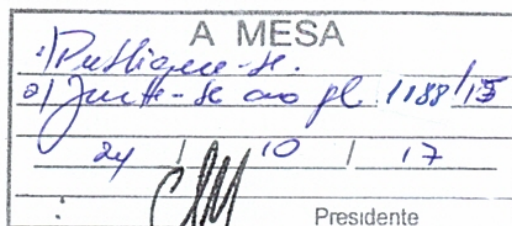 A MESA
1) Publique-se.
2) Junte-se ao pl 1188/15
24 / 10 / 17
Presidente